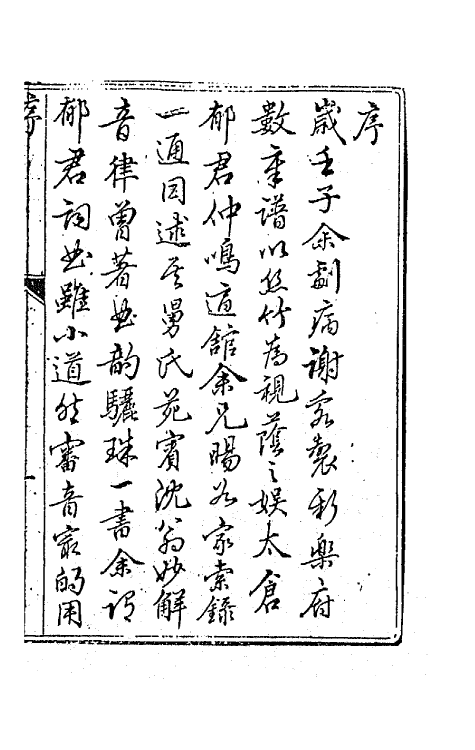 序
歲壬子余劇病謝客製新樂府
數章譜以絲竹為視蔭之娛太倉
郁君仲鳴適館余兄暘谷家索錄
一通因述其舅氏苑賓沈翁妙解
音律曾著曲韵驪珠一書余謂
郁君詞曲雖小道然審音最的用
序
一